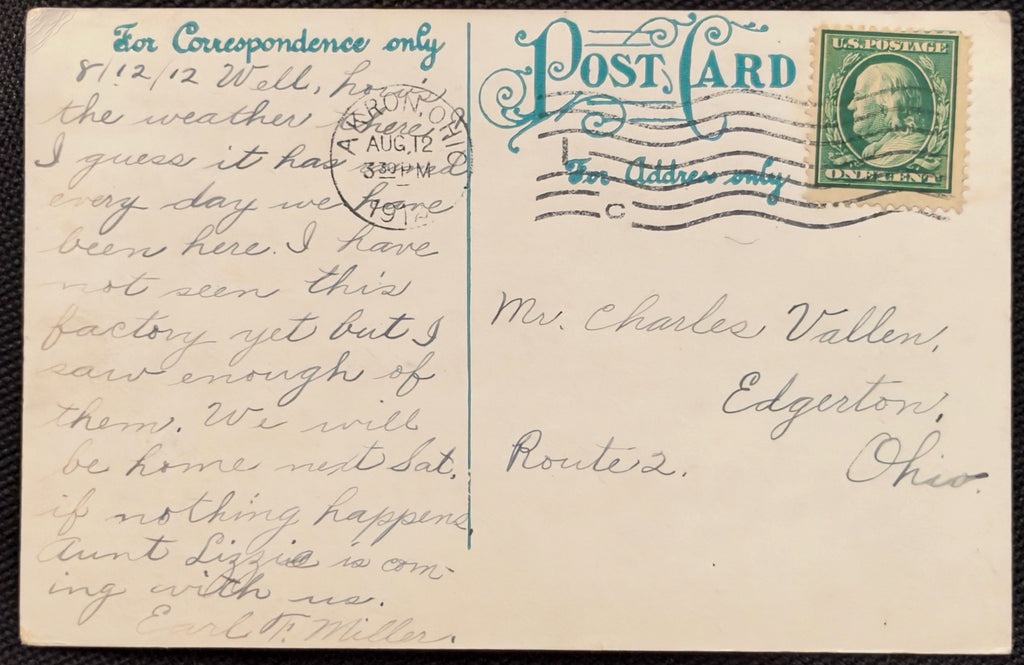 For Correspondence only
8/12/12 Well, how's
the weather there
I guess it has
every day we have
been here. I have
not seen this
factory yet but I
saw enough of
them. We will
be home next Sat.
if nothing happens.
Aunt Lizzie is com-
ing with us.
Earl F. Miller.
AKRON, OHIO
AUG, 12
3 30 PM
1912
POST CARD
For Address only
U.S. POSTAGE
ONE CENT
C
Mr. Charles Vallen,
Edgerton,
Route 2.
Ohio.